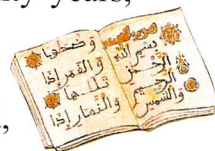 years,
بسم الله
الرحمن
الرحيم
والشمس
وضحاها
والقمر إذا
تلاها
والنهار إذا